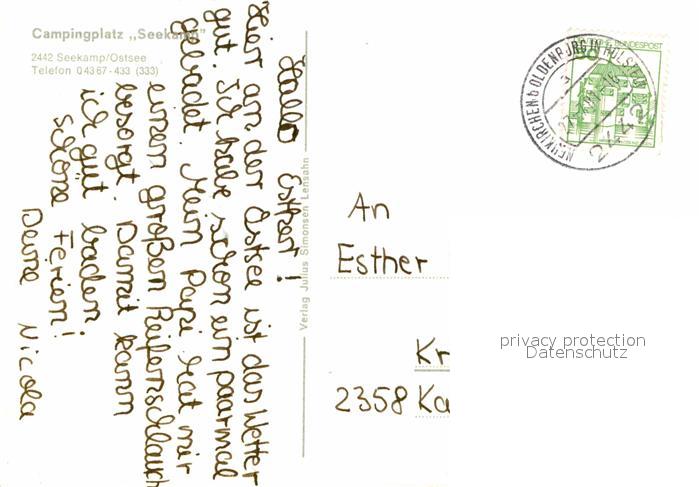 Campingplatz „Seekamp“
2442 Seekamp/Ostsee
Telefon 04367-433 (333)
Hallo Esther!
Hier an der Ostsee ist das Wetter
gut. Ich habe schon ein paarmal
gebadet. Mein Papi hat mir
einen großen Reifenschlauch
besorgt. Damit kann
ich gut baden.
schöne Ferien!
Deine Nicola
Verlag Julius Simonsen Lensahn
DEUTSCHE BUNDESPOST
NEUKIRCHEN b OLDENBURG IN HOLSTEIN
2441
An
Esther
Kr
2358 Ka
privacy protection
Datenschutz